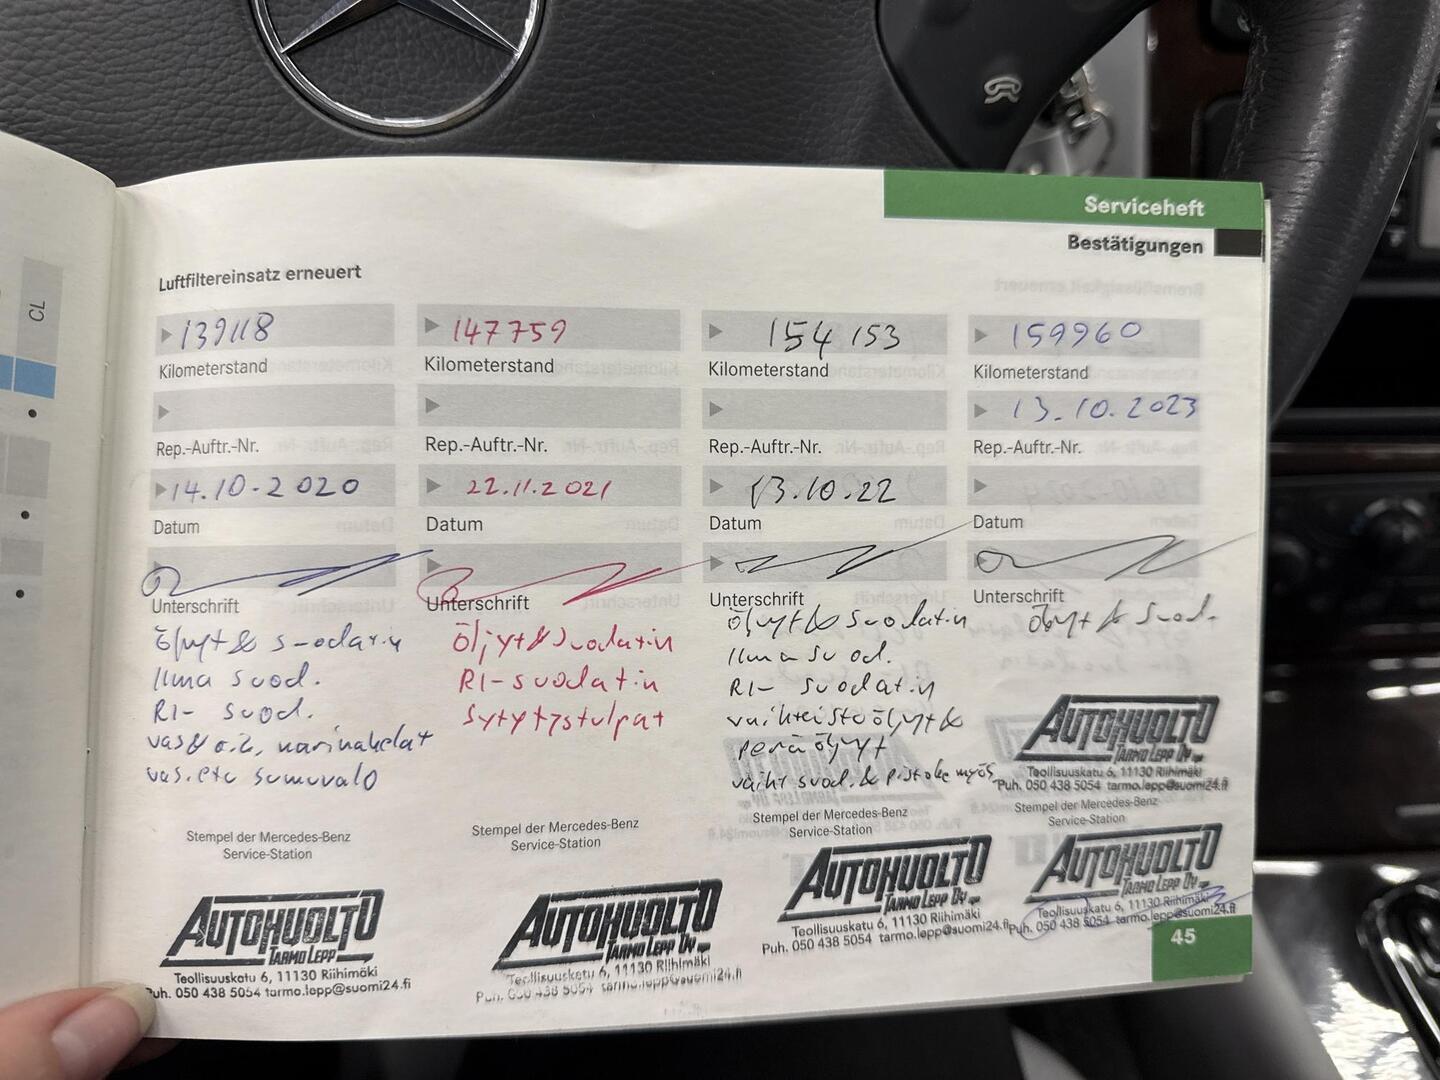 CL
Serviceheft
Bestätigungen
Luftfiltereinsatz erneuert
139118
Kilometerstand
Rep.-Auftr.-Nr.
14.10.2020
Datum
Unterschrift
Öljyt & suodatin
Ilma suod.
RI- suod.
vas. etu sumuvalo
Stempel der Mercedes-Benz
Service-Station
AUTOHUOLTO
TARMO LEPP
Teollisuuskatu 6, 11130 Riihimäki
Puh. 050 438 5054 tarmo.lepp@suomi24.fi
147759
Kilometerstand
Rep.-Auftr.-Nr.
22.11.2021
Datum
Unterschrift
Öljyt & suodatin
RI- suodatin
Sytytystulpat
Stempel der Mercedes-Benz
Service-Station
AUTOHUOLTO
TARMO LEPP OY
Teollisuuskatu 6, 11130 Riihimäki
Puh. 050 438 5054 tarmo.lepp@suomi24.fi
154153
Kilometerstand
Rep.-Auftr.-Nr.
13.10.22
Datum
Unterschrift
Öljyt & suodatin
Ilma suod.
RI- suodatin
vaihteistoöljyt &
peräöljyt
vaiht suod. & pistoke myös
Stempel der Mercedes-Benz
Service-Station
AUTOHUOLTO
TARMO LEPP OY
Teollisuuskatu 6, 11130 Riihimäki
Puh. 050 438 5054 tarmo.lepp@suomi24.fi
159960
Kilometerstand
13.10.2023
Rep.-Auftr.-Nr.
Datum
Unterschrift
Öljyt & suod.
AUTOHUOLTO
TARMO LEPP OY
Teollisuuskatu 6, 11130 Riihimäki
Puh. 050 438 5054 tarmo.lepp@suomi24.fi
Stempel der Mercedes-Benz
Service-Station
AUTOHUOLTO
TARMO LEPP OY
Teollisuuskatu 6, 11130 Riihimäki
Puh. 050 438 5054 tarmo.lepp@suomi24.fi
45